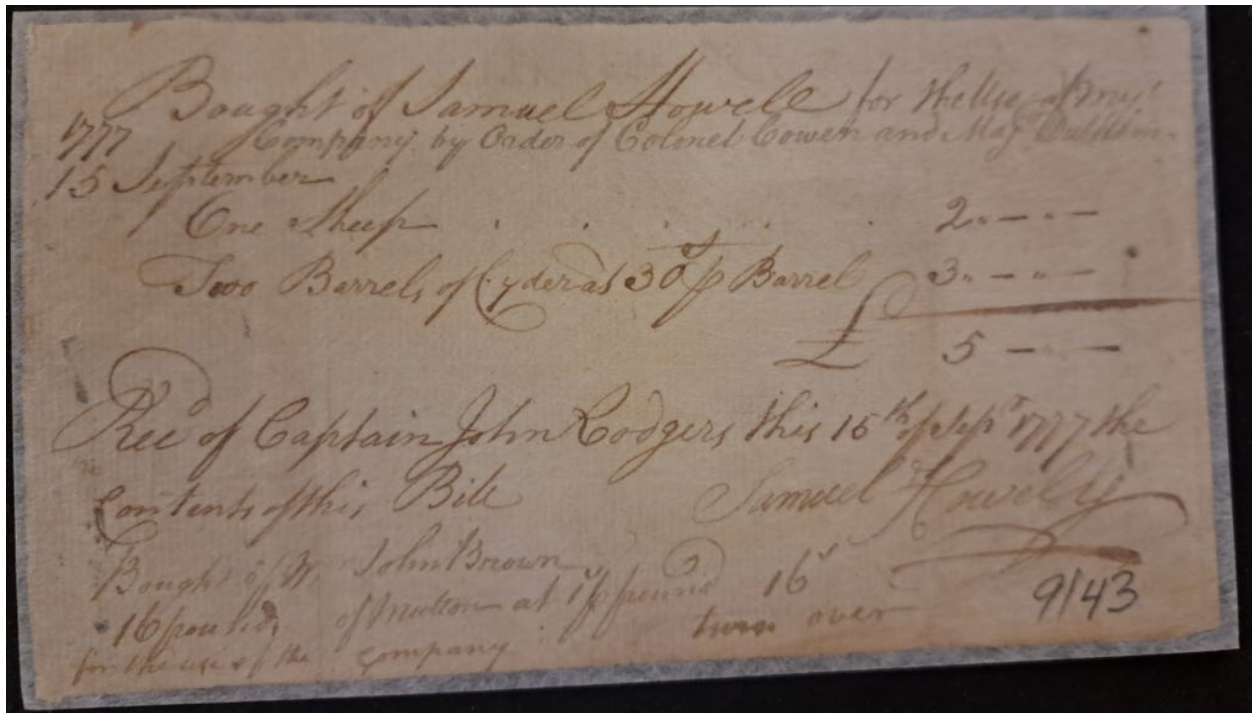 Bought of Samuel Howell for the Use of my
1777 Company by Order of Colonel Cowen and Maj
15 September
One Sheep . . . . . 2 " — " —
Two Barrels of Cyder at 30/ p Barrel 3 " — " —
£ 5 — —
Rec'd of Captain John Rodgers this 15th of Sepr 1777 the
Contents of this Bill Samuel Howell
Bought of Mr John Brown
16 pounds of mutton at 1/ p pound 16
for the use of the company turn over
9143